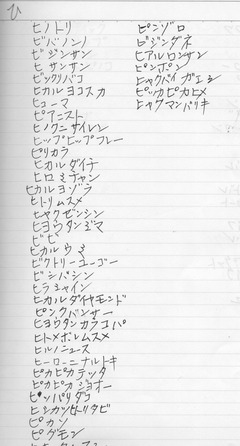 ひ
ヒノトリ
ビバノンノ
ビジンサン
ヒサンサン
ビックリバコ
ヒカルヨコスカ
ヒューマ
ピアニスト
ヒノクニサイレン
ヒップヒップフレー
ピリカラ
ヒカルダイナ
ヒロミチャン
ヒカルヨゾラ
ヒトリムスメ
ヒャクゼンシン
ヒョウタンジマ
ビビ
ヒカルウミ
ビクトリーユーゴー
ビシバシン
ヒラシャイン
ヒカルダイヤモンド
ピンクパンサー
ヒョウタンカラコパ
ヒトメボレムスメ
ヒルノニュース
ヒーローニナルトキ
ピカピカテッタ
ピカピカジョオー
ヒッパリダコ
ピカソ
ピグモン
ピンゾロ
ビジンダネ
ヒアルロンサン
ピンポン
ヒャクバイガエシ
ピッカピカヒメ
ヒャクマンバリキ